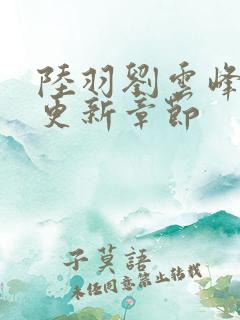 陸羽劉雲峰
更新章節
子莫語
未经同意禁止转载